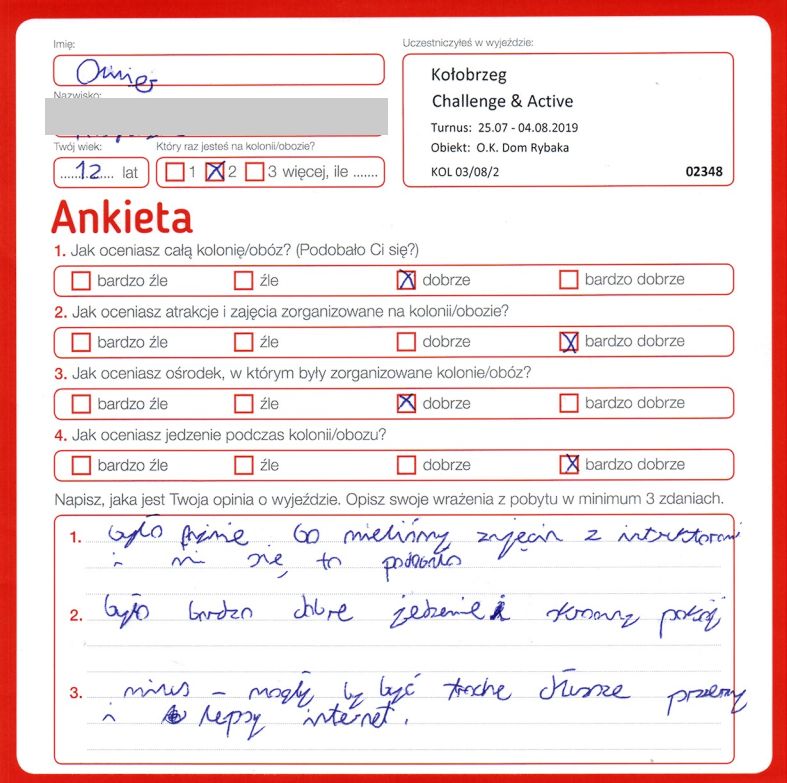 Imię:
Uczestniczyłeś w wyjeździe:
Kołobrzeg
Challenge & Active
Turnus: 25.07 - 04.08.2019
Obiekt: O.K. Dom Rybaka
KOL 03/08/2 02348
Nazwisko:
Twój wiek: Który raz jesteś na kolonii/obozie?
12 lat 1 2 3 więcej, ile .......
Ankieta
1. Jak oceniasz całą kolonię/obóz? (Podobało Ci się?)
bardzo źle źle dobrze bardzo dobrze
2. Jak oceniasz atrakcje i zajęcia zorganizowane na kolonii/obozie?
bardzo źle źle dobrze bardzo dobrze
3. Jak oceniasz ośrodek, w którym były zorganizowane kolonie/obóz?
bardzo źle źle dobrze bardzo dobrze
4. Jak oceniasz jedzenie podczas kolonii/obozu?
bardzo źle źle dobrze bardzo dobrze
Napisz, jaka jest Twoja opinia o wyjeździe. Opisz swoje wrażenia z pobytu w minimum 3 zdaniach.
1. było fajnie bo mieliśmy zajęcia z
i mi się to podobało
2. było bardzo dobre jedzenie i pokój
3. minus - mogły by być troche dłuższe przerwy
i lepszy internet.